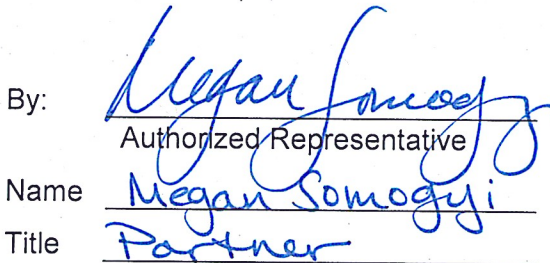 By: Megan Somogyi
Authorized Representative
Name Megan Somogyi
Title Partner